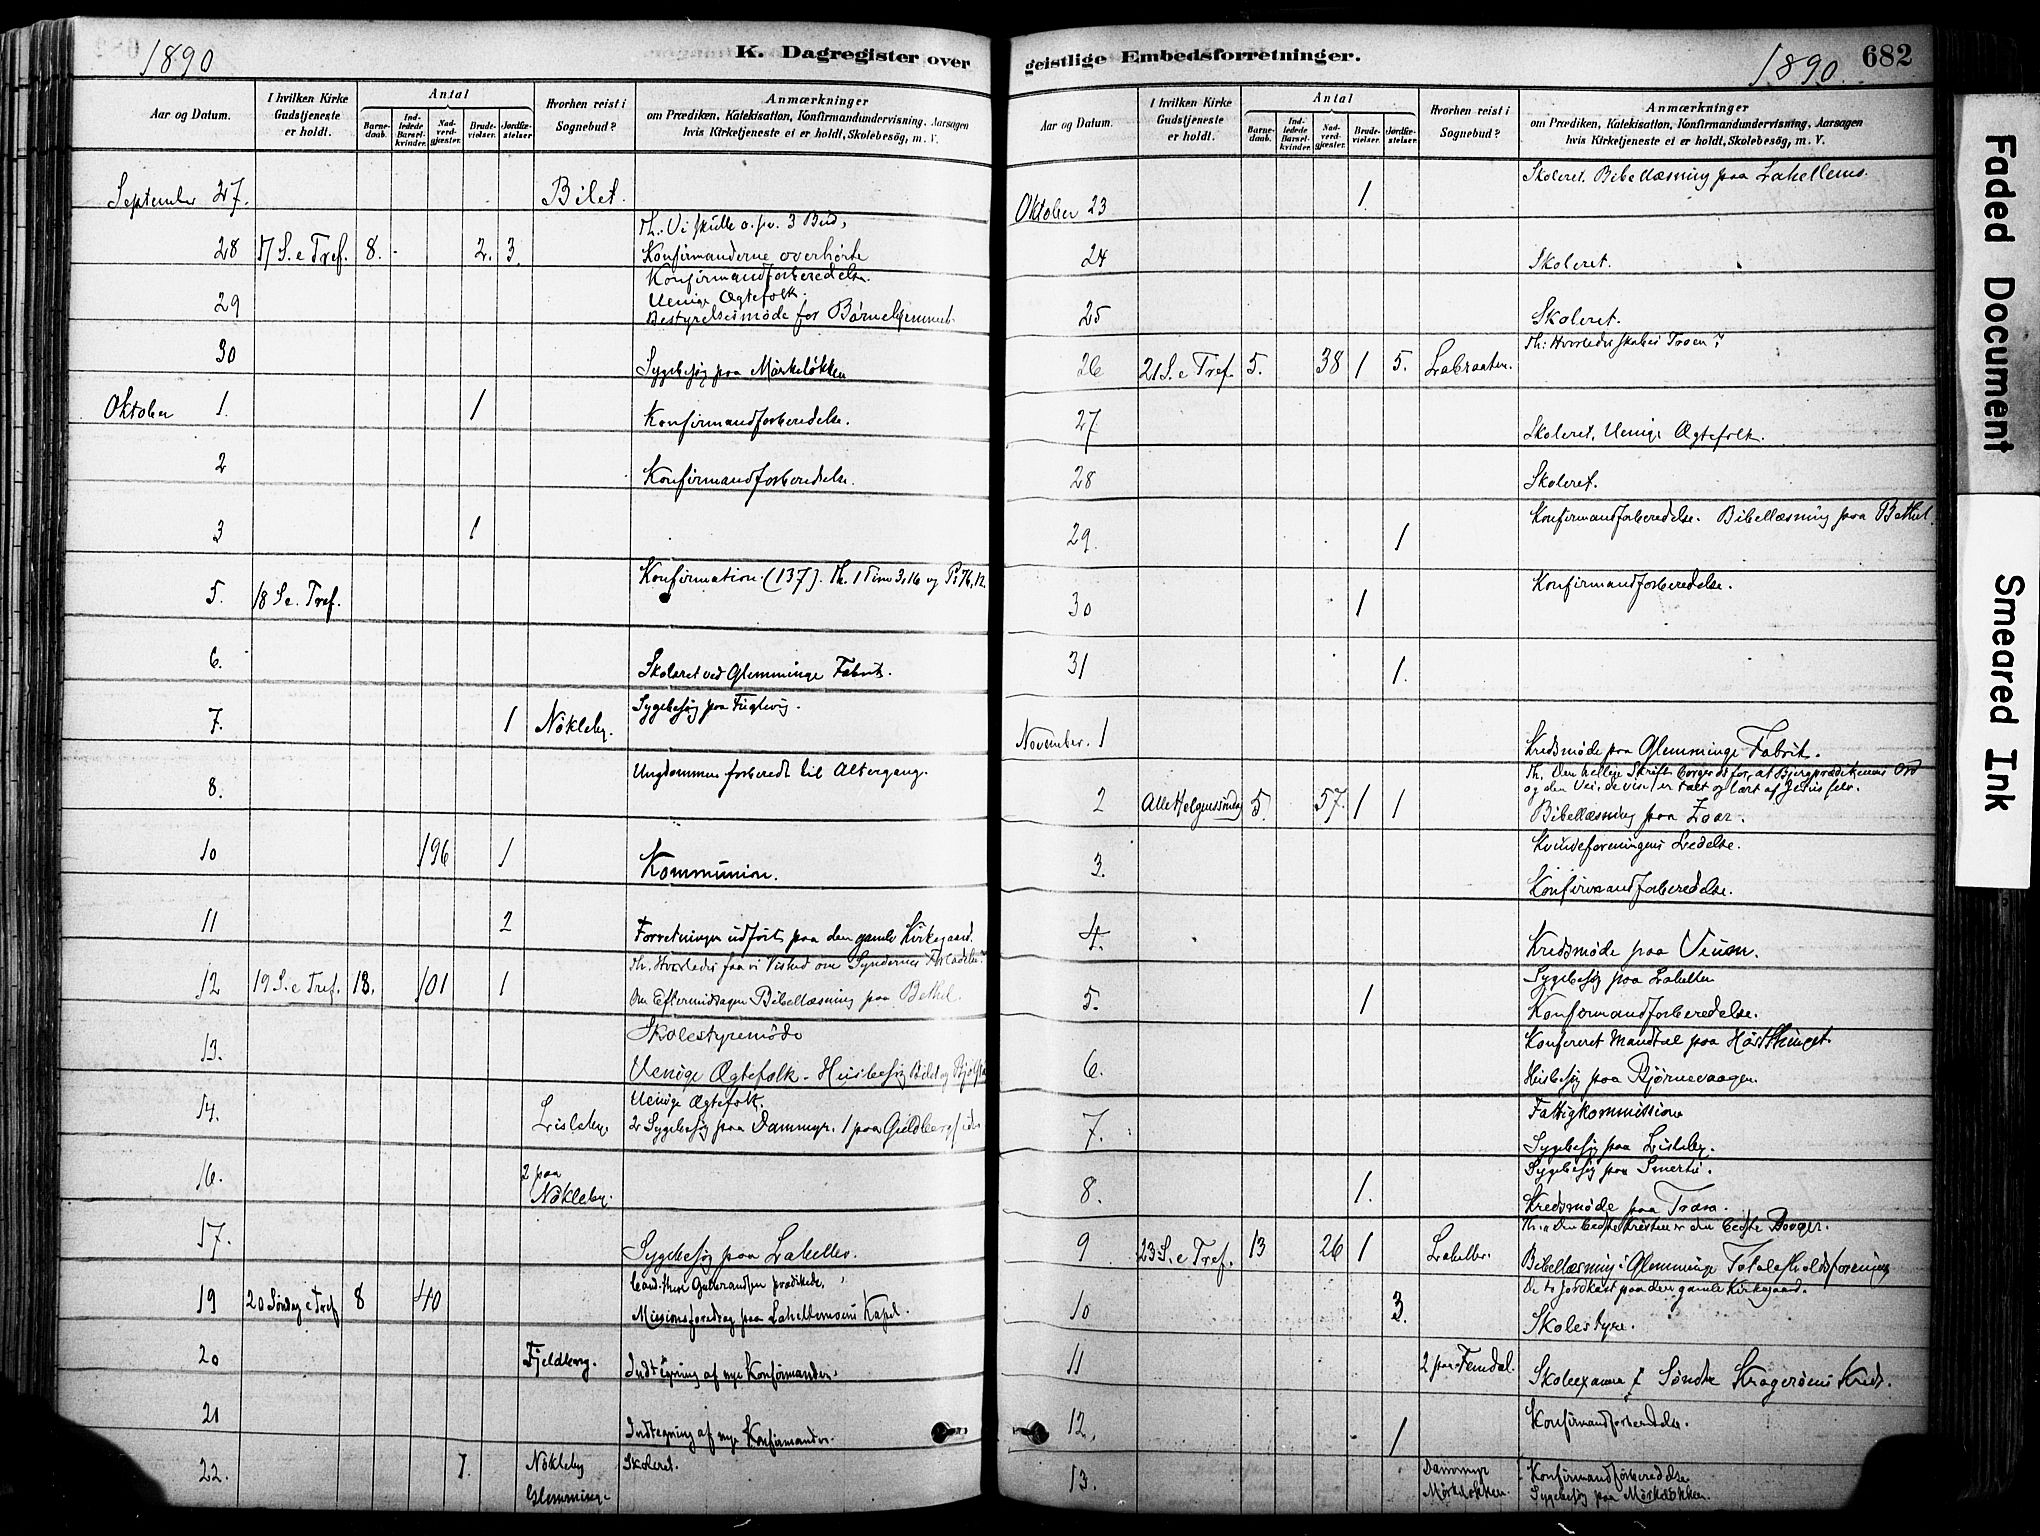 1890
K. Dagregister over
Aar og Datum.
I hvilken Kirke Gudstjeneste er holdt.
Antal
Barnedaab.
Indledede Barselkvinder.
Nadverdgjæster.
Brudevielser.
Jordfæstelser.
Hvorhen reist i Sognebud?
Anmærkninger
om Prædiken, Katekisation, Konfirmandundervisning, Aarsagen
hvis Kirketjeneste ei er holdt, Skolebesøg, m. V.
September 27. Bilet.
28 17 S. e Tref. 8. 2. 3. Th. Vi skulle o.sv. 3 Bud,
Konfirmanderne overhørte
Konfirmandforberedelse.
29 Uenige Ægtefolk.
Bestyrelsesmøde for Børnehjemmet.
30 Sygebesøg paa Mørkeløkken
Oktober 1. 1 Konfirmandforberedelse.
2 Konfirmandforberedelse.
3 1
5. 18 S e. Tref. Konfirmation (137). Th. 1 Tim 3,16 og Ps 76,12.
6. Skoleret ved Glemminge Fabrik.
7. 1 Nökleby. Sygebesøg paa Fuglevig.
8. Ungdommen forberedt til Altergang.
10 196 1 Kommunion.
11 2 Forretningen udført paa den gamle Kirkegaard.
12 19 S. e Tref. 13. 101 1 Th. Hvorledes faa vi Vished om Syndernes Forladelse
Om Eftermiddagen Bibellæsning paa Bethel.
13. Skolestyremøde
Uenige Ægtefolk. Husbesøg Bilet og
14. Lisleby. Uenige Ægtefolk.
2 Sygebesøg paa Dammyr. 1 paa
16. 2 paa Nökleby.
17. Sygebesøg paa Lahellen.
19 20 Søndag e Tref 8 40 Cand. theol Gulbrandsen prædikede,
Missionsforedrag paa Lahellemoens Kapel.
20 Fjeldberg. Indtegning af nye Konfirmander.
21 Indtegning af nye Konfirmander.
22. 7. Nökleby Skoleret.
Glemminge
geistlige Embedsforretninger.
1890. 682
Aar og Datum.
I hvilken Kirke Gudstjeneste er holdt.
Antal
Barnedaab.
Indledede Barselkvinder.
Nadverdgjæster.
Brudevielser.
Jordfæstelser.
Hvorhen reist i Sognebud?
Anmærkninger
om Prædiken, Katekisation, Konfirmandundervisning, Aarsagen
hvis Kirketjeneste ei er holdt, Skolebesøg, m. V.
Oktober 23 1. Skoleret. Bibellæsning paa Lahellemo.
24 Skoleret.
25 Skoleret.
26 21 S. e Tref. 5. 38 1 5. Labraaten. Th: Hvorledes skabes Troen?
27 Skoleret. Uenige Ægtefolk.
28 Skoleret.
29. 1 Konfirmandforberedelse. Bibellæsning paa Bethel.
30 1 Konfirmandforberedelse.
31 1.
November. 1 Kredsmøde paa Glemminge Fabrik.
2 Alle Helgenssøndag 5. 57. 1 1 Th. Den hellige Skrift borger os for, at Bjergprædikenens Ord
og den Vei, de vise, er talt og lært af Jesus selv.
Bibellæsning paa Zoar.
3. Kvindeforeningens Ledelse.
Konfirmandforberedelse.
4. Kredsmøde paa Veum.
5. 1 Sygebesøg paa Lahellen
Konfirmandforberedelse.
6. Konfereret Mandtal paa Høstthinget.
Husbesøg paa Bjørnevaagen.
7. Fattigkommission
Sygebesøg paa Lisleby.
8. 1. Sygebesøg paa Smertu.
Kredsmøde paa Trara.
9 23 S. e Tref. 13 26 1 Lahelle. Th. Den bedste Kristen er den bedste Borger.
Bibellæsning i Glemminge Totalafholdsforening
10 3. De to Jordkast paa den gamle Kirkegaard.
Skolestyre.
11 2 paa Femdal. Skoleexamen f Søndre Kragerøens Kreds.
12. 1 Konfirmandforberedelse.
13. Dammyr Konfirmandforberedelse
Mørkeløkken. Sygebesøg paa Mørkeløkken.
Faded Document
Smeared Ink